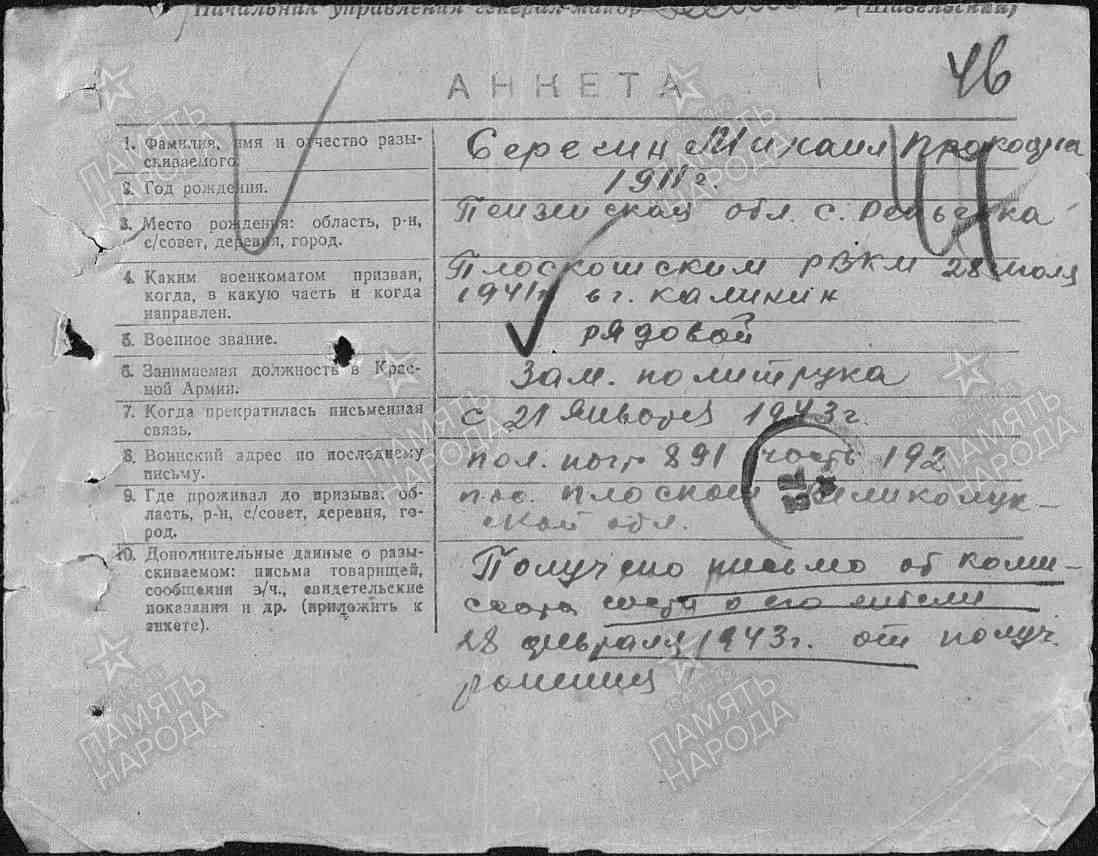 Начальник управления генерал-майор (Шавельский)
АННЕТА
46
1. Фамилия, имя и отчество разыскиваемого.
Серегин Михаил
2. Год рождения.
1911 г.
3. Место рождения: область, р-н, с/совет, деревня, город.
Пензенская обл. с.
4. Каким военкоматом призван, когда, в какую часть и когда направлен.
Плоскошским РВКМ 28 июля
1941 г. в г. Калинин
5. Военное звание.
рядовой
6. Занимаемая должность в Красной Армии.
Зам. политрука
7. Когда прекратилась письменная связь.
с 21 января 1943 г.
8. Воинский адрес по последнему письму.
пол. почт 891 часть 192
9. Где проживал до призыва: область, р-н, с/совет, деревня, город.
Великолук-
ской обл.
10. Дополнительные данные о разыскиваемом: письма товарищей, сообщения в/ч., свидетельские показания и др. (приложить к анкете).
Получено письмо от коми-
ссара части о его гибели
28 февраля 1943 г. от получ.
ранения
ПАМЯТЬ НАРОДА
ПАМЯТЬ НАРОДА
ПАМЯТЬ НАРОДА
ПАМЯТЬ НАРОДА
ПАМЯТЬ НАРОДА
ПАМЯТЬ НАРОДА